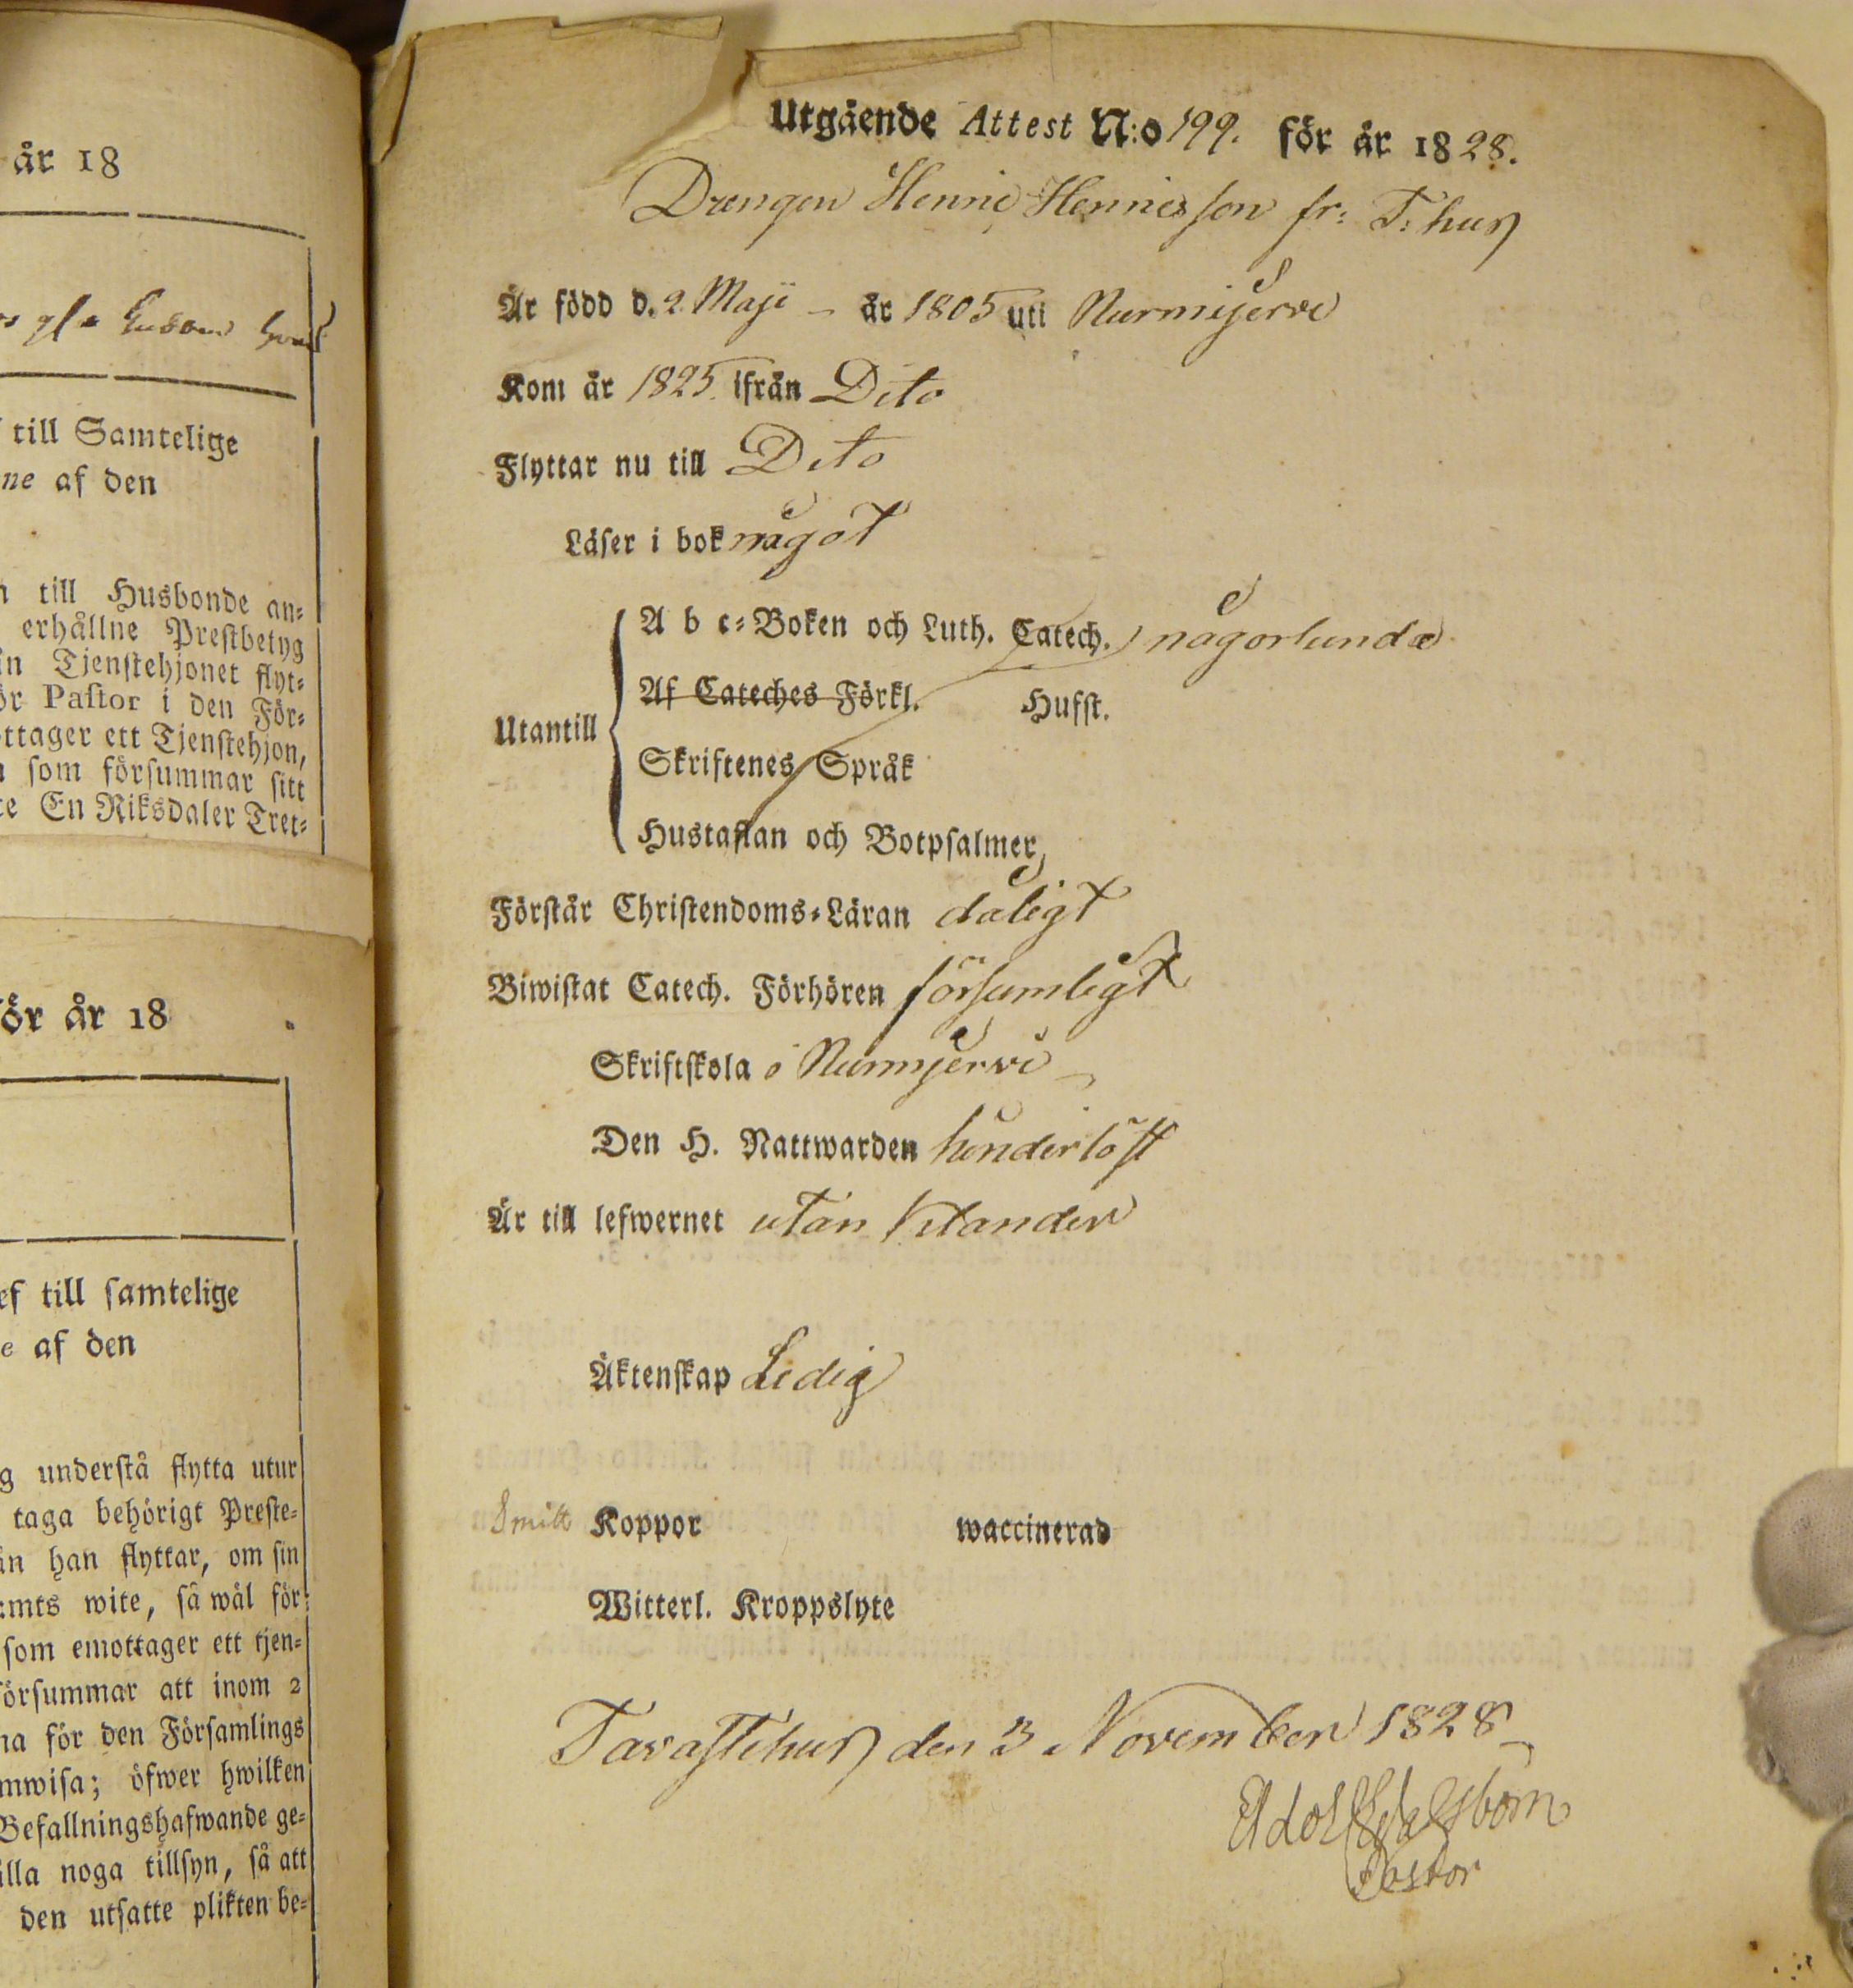 år 18
till Samtelige
ne af den
till Husbonde an=
erhållne Prestbetyg
n Tjenstehjonet flyt=
ör Pastor i den För=
ttager ett Tjenstehjon,
som försummar sitt
te En Riksdaler Tret=
ör år 18
ef till samtelige
e af den
g understå flytta utur
taga behörigt Preste=
än han flyttar, om sin
mts wite, så wäl för
som emottager ett tjen=
örsummar att inom 2
na för den Församlings
mwisa; öfwer hwilken
Befallningshafwande ge=
illa noga tillsyn, så att
den utsatte plikten be=
Utgående Attest N:o 199. för år 1828.
Drengen Henric Henricsson fr: T:hus
Är född d. 2 Maji - år 1805 uti Nurmijervi
Kom år 1825 ifrån Dito
Flyttar nu till Dito
Läser i bok något
A b c=Boken och Luth. Catech. någorlunda
Af Cateches Förkl. Husst.
Utantill
Skriftenes Språk
Hustaflan och Botpsalmer
Förstår Christendoms=Läran dåligt
Biwistat Catech. Förhören försumligt
Skriftskola i Nurmijervi
Den H. Nattwarden hinderlöst
Är till lefwernet utan klander
Äktenskap Ledig
Koppor waccinerad
Witterl. Kroppslyte
Tavastehus den 3 November 1828
Adolf
Pastor